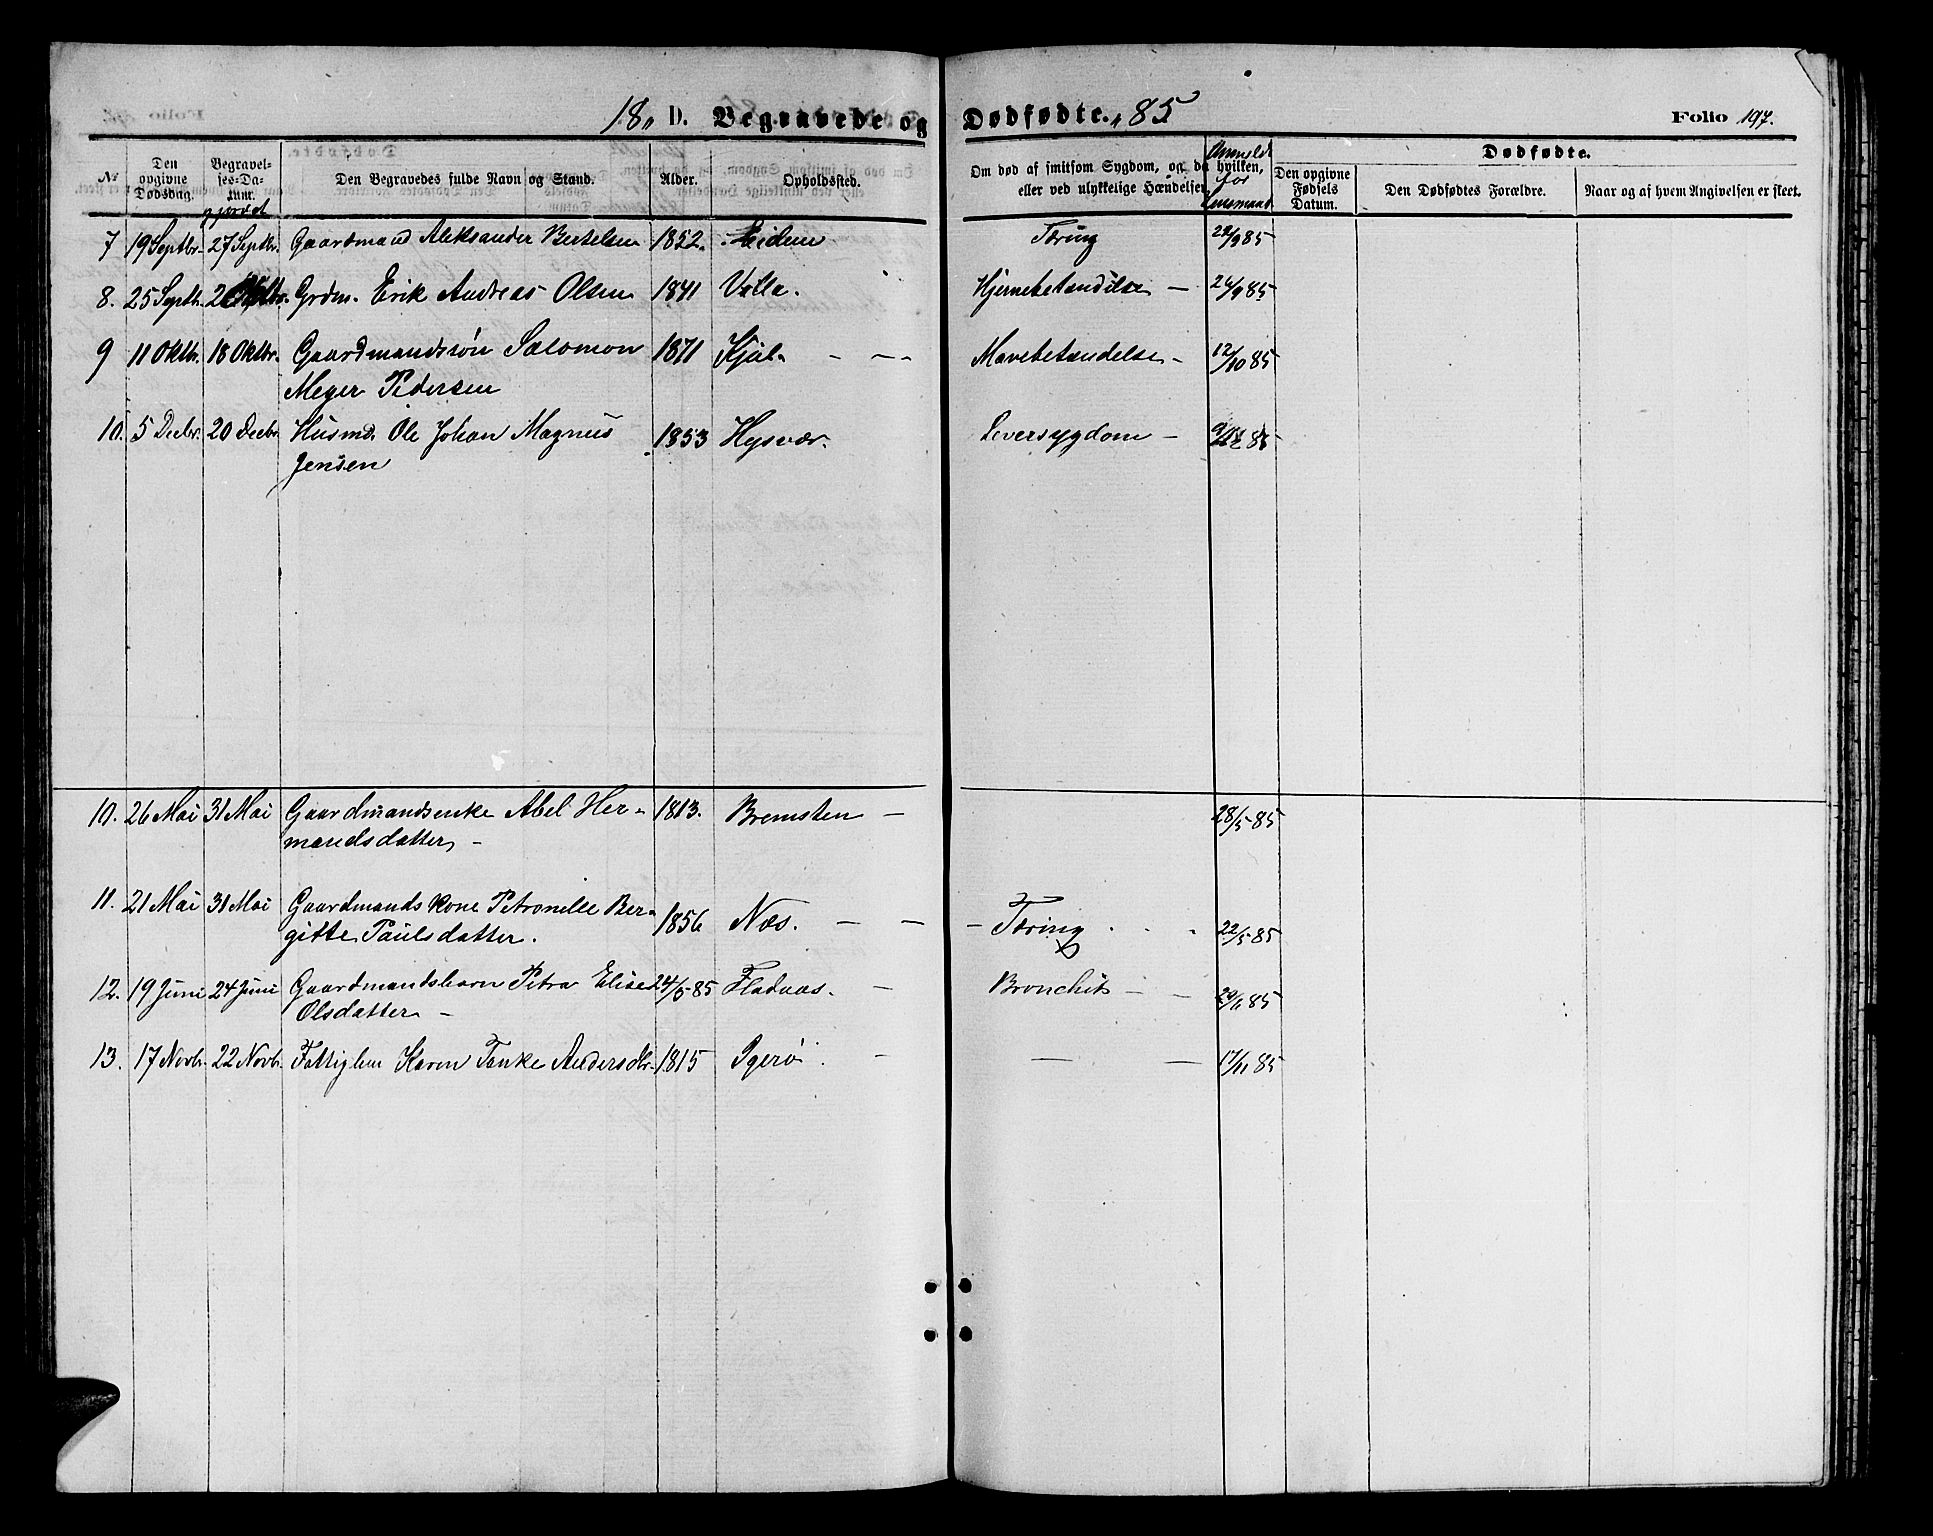 18" D. Begravede og Dødfødte. "85
Folio 197.
№
Den opgivne Dødsdag.
Begravelses-Datum.
Den Begravedes fulde Navn og Stand.
Alder.
Opholdssted.
Om død af smitsom Sygdom, og da hvilken, eller ved ulykkelige Hændelser.
Anmeldt for Lensmand
Dødfødte.
Den opgivne Fødsels Datum.
Den Dødfødtes Forældre.
Naar og af hvem Angivelsen er skeet.
7 19 Septbr. 27 Septbr. Gaardmand Aleksander Bertelsen 1852. Eidem Tæring 22/9 85
8. 25 Septb. 2 Oktbr. Grdm. Erik Andreas Olsen 1841 Valla. Hjernebetændelse — 26/9 85
9 11 Oktbr. 18 Oktbr. Gaardmandssön Salomon 1871 Kjul. Mavebetændelse — 12/10 85
Meyer Pedersen
10. 5 Decbr. 20 Decbr. Husmd. Ole Johan Magnus 1853 Hysvær. Leversygdom — 85
Jensen
10. 26 Mai 31 Mai Gaardmandsenke Abel Her- 1813. Bremsten — 28/5 85
mandsdatter —
11. 21 Mai 31 Mai Gaardmands kone Petronelle Ber- 1856 Næs. — — Tæring 22/5 85
gitte Paulsdatter.
12. 19 Juni 24 Juni Gaardmandsbarn Petra Elise 24/5 85 Fladaas. — Bronchit — — 20/6 85
Olsdatter —
13. 17 Novbr. 22 Novbr. Fattiglem Karen Tanke Andersdtr. 1815 Igerö — — — 17/11 85